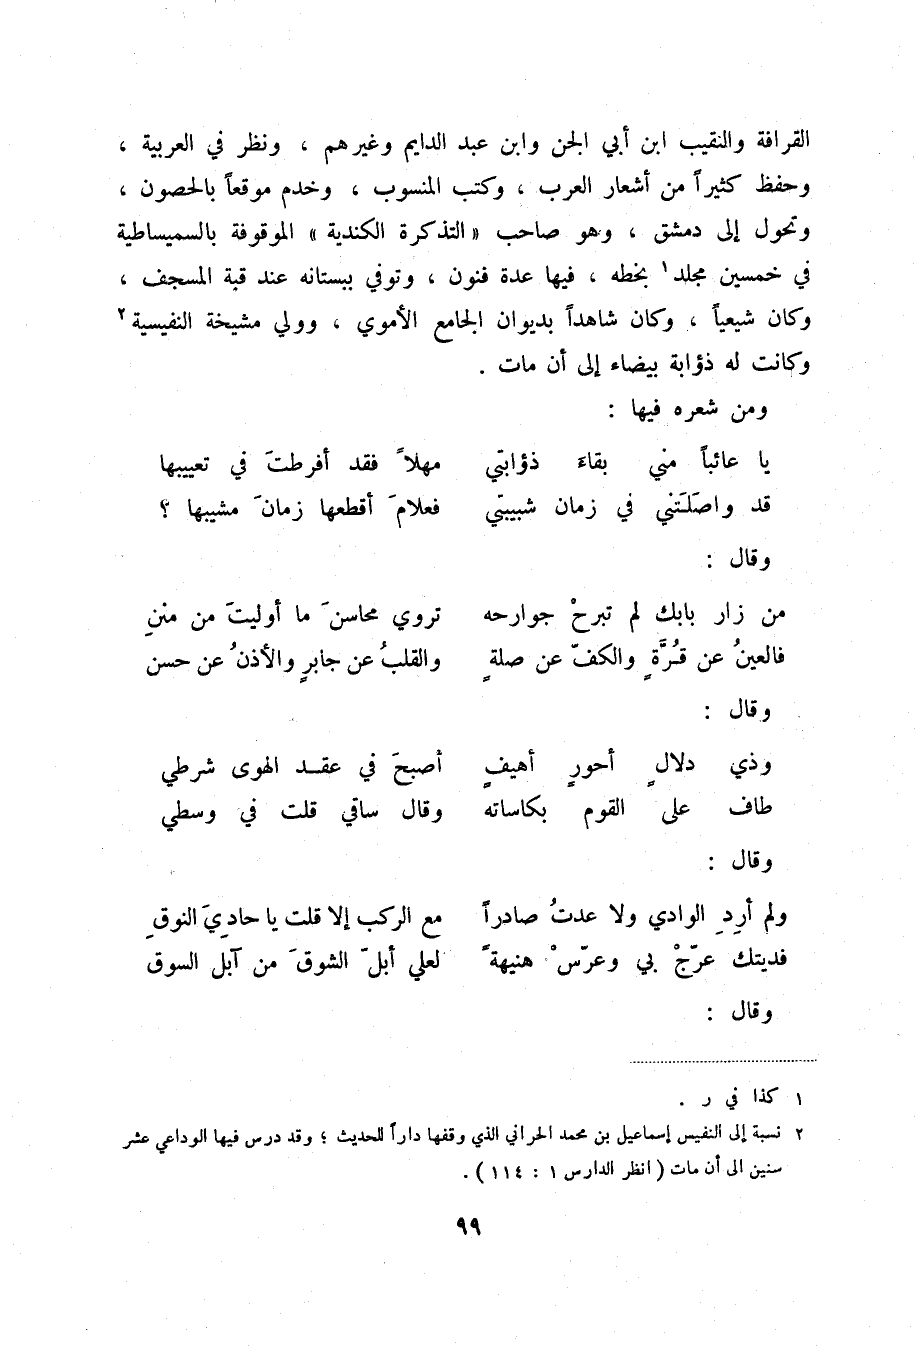 القرافة والنقيب ابن أبي الجن وابن عبد الدايم وغيرهم ، ونظر في العربية ،
وحفظ كثيراً من أشعار العرب ، وكتب المنسوب ، وخدم موقعاً بالحصون ،
وتحول إلى دمشق ، وهو صاحب « التذكرة الكندية » الموقوفة بالسميساطية
في خمسين مجلد١ بخطه ، فيها عدة فنون ، وتوفي ببستانه عند قبة المسجف ،
وكان شيعياً ، وكان شاهداً بديوان الجامع الأموي ، وولي مشيخة النفيسية٢
وكانت له ذؤابة بيضاء إلى أن مات .
ومن شعره فيها :
يا عائباً مني بقاءَ ذؤابتي مهلاً فقد أفرطتَ في تعييبها
قد واصَلَتْني في زمان شبيبتي فعلامَ أقطعها زمانَ مشيبها ؟
وقال :
من زار بابك لم تبرحْ جوارحه تروي محاسنَ ما أوليتَ من مننِ
فالعينُ عن قُرَّةٍ والكفّ عن صلةٍ والقلبُ عن جابرٍ والأذنُ عن حسن
وقال :
وذي دلالٍ أحورٍ أهيفٍ أصبحَ في عقد الهوى شرطي
طاف على القوم بكاساته وقال ساقي قلت في وسطي
وقال :
ولم أرِدِ الوادي ولا عدتُ صادراً مع الركب إلا قلت يا حاديَ النوقِ
فديتك عرّجْ بي وعرّسْ هنيهةً لعلي أبلّ الشوقَ من آبل السوق
وقال :
١ كذا في ر .
٢ نسبة إلى النفيس إسماعيل بن محمد الحراني الذي وقفها داراً للحديث ؛ وقد درس فيها الوداعي عشر
سنين الى أن مات ( انظر الدارس ١ : ١١٤ ) .
٩٩